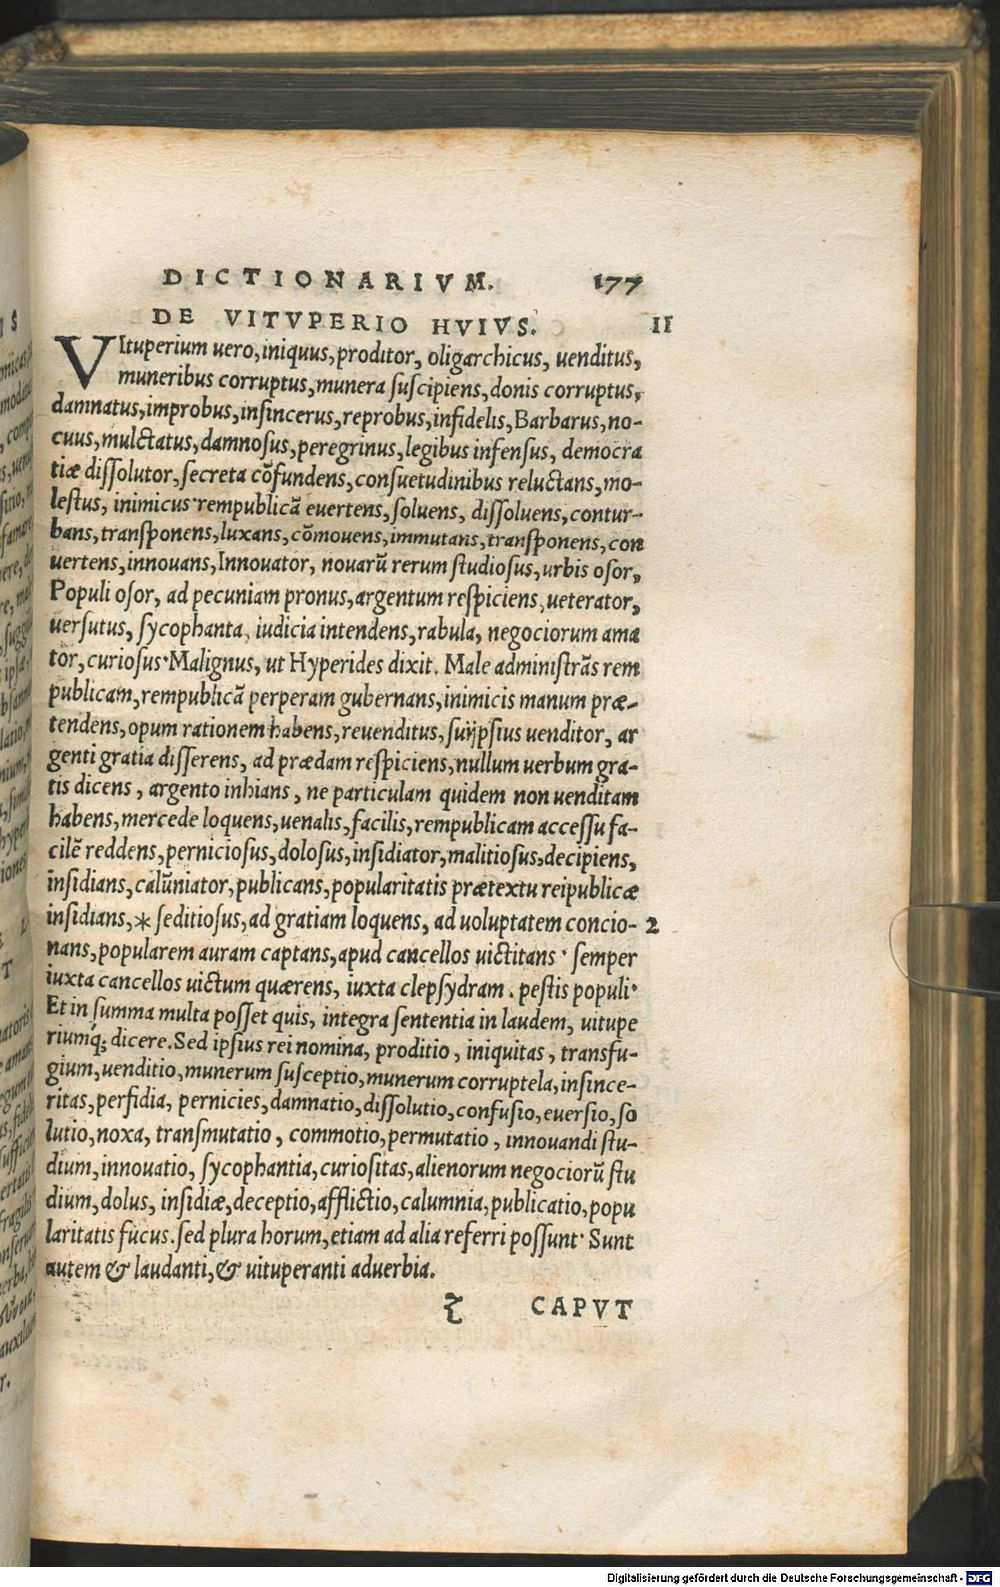 DICTIONARIVM. 177
DE VITVPERIO HVIVS. II
VItuperium uero, iniquus, proditor, oligarchicus, uenditus,
muneribus corruptus, munera ſuſcipiens, donis corruptus,
damnatus, improbus, inſincerus, reprobus, infidelis, Barbarus, no-
cuus, mulctatus, damnoſus, peregrinus, legibus infenſus, democra
tiæ diſſolutor, ſecreta cōfundens, conſuetudinibus reluctans, mo-
leſtus, inimicus· rempublicā euertens, ſoluens, diſſoluens, contur-
bans, tranſponens, luxans, cōmouens, immutans, tranſponens, con
uertens, innouans, Innouator, nouarū rerum ſtudioſus, urbis oſor,
Populi oſor, ad pecuniam pronus, argentum reſpiciens, ueterator,
uerſutus, ſycophanta, iudicia intendens, rabula, negociorum ama
tor, curioſus· Malignus, ut Hyperides dixit. Male adminiſtrās rem
publicam, rempublicā perperam gubernans, inimicis manum præ-
tendens, opum rationem habens, reuenditus, ſuijpſius uenditor, ar
genti gratia diſſerens, ad prædam reſpiciens, nullum uerbum gra-
tis dicens, argento inhians, ne particulam quidem non uenditam
habens, mercede loquens, uenalis, facilis, rempublicam acceſſu fa-
cilē reddens, pernicioſus, doloſus, inſidiator, malitioſus, decipiens,
inſidians, calūniator, publicans, popularitatis prætextu reipublicæ
inſidians, * ſeditioſus, ad gratiam loquens, ad uoluptatem concio- 2
nans, popularem auram captans, apud cancellos uictitans· ſemper
iuxta cancellos uictum quærens, iuxta clepſydram. peſtis populi·
Et in ſumma multa poſſet quis, integra ſententia in laudem, uitupe
riumq́; dicere. Sed ipſius rei nomina, proditio, iniquitas, transfu-
gium, uenditio, munerum ſuſceptio, munerum corruptela, inſince-
ritas, perfidia, pernicies, damnatio, diſſolutio, confuſio, euerſio, ſo
lutio, noxa, tranſmutatio, commotio, permutatio, innouandi ſtu-
dium, innouatio, ſycophantia, curioſitas, alienorum negociorū ſtu
dium, dolus, inſidiæ, deceptio, afflictio, calumnia, publicatio, popu
laritatis fucus. ſed plura horum, etiam ad alia referri poſſunt· Sunt
autem & laudanti, & uituperanti aduerbia.
CAPVT
Digitalisierung gefördert durch die Deutsche Forschungsgemeinschaft - DFG